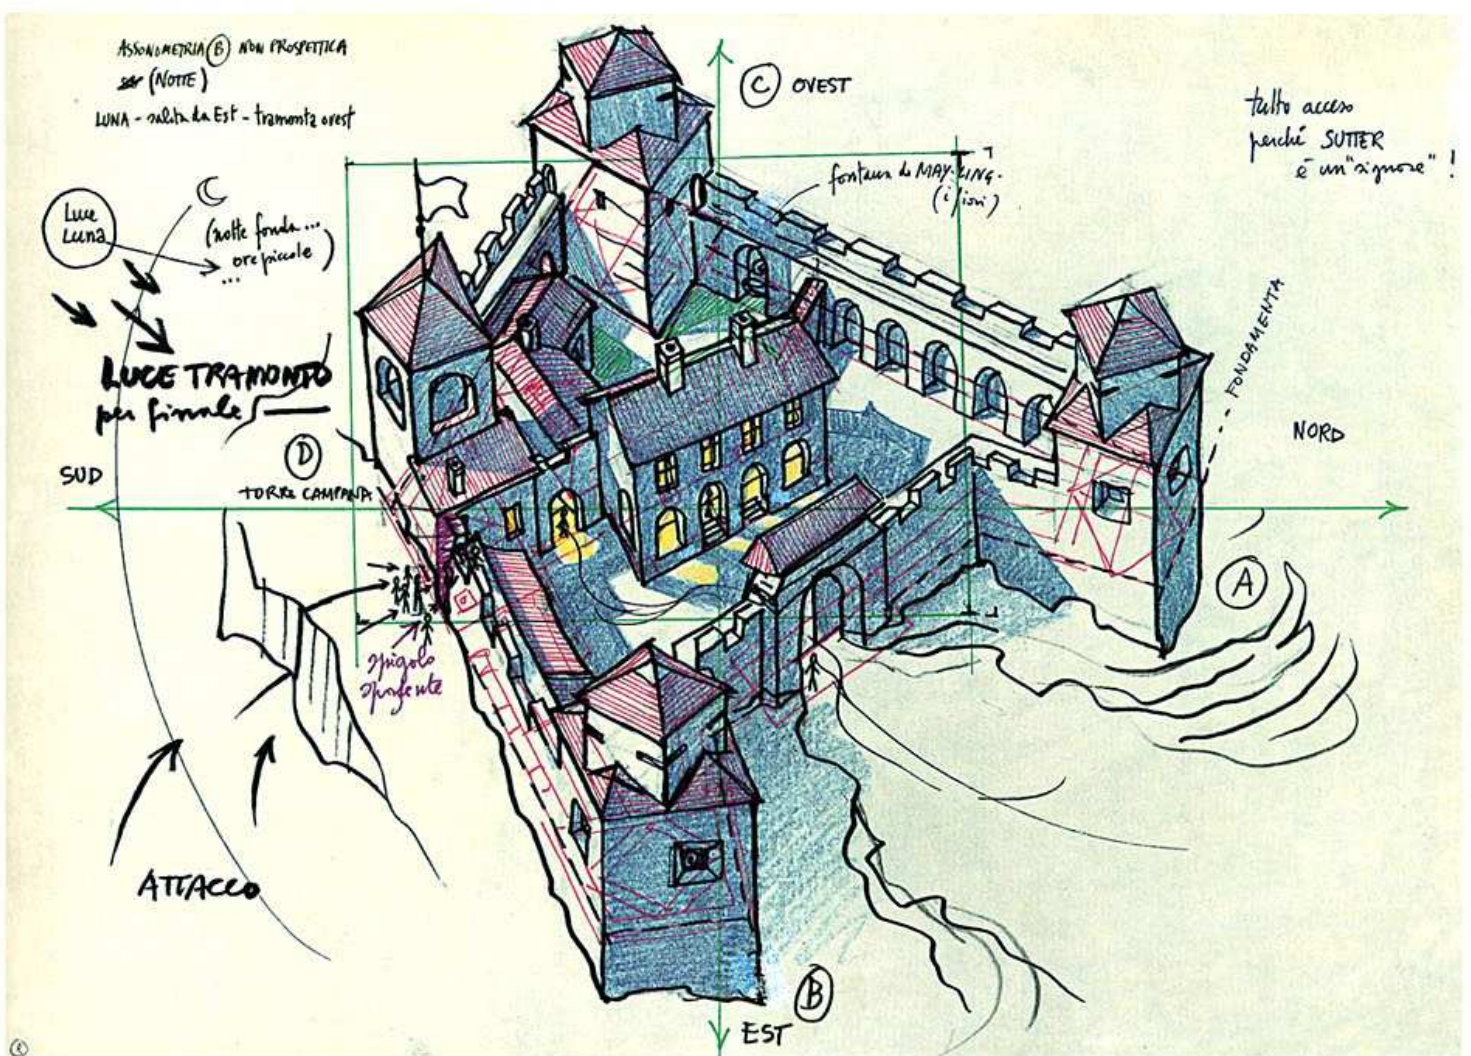 ASSONOMETRIA (B) NON PROSPETTICA
(NOTTE)
LUNA - salita da Est - tramonta ovest
C OVEST
tutto acceso
perché SUTTER
è un "signore" !
fontana di MAY-LING.
(i fiori)
Luce
Luna
(notte fonda ...
ore piccole)
...
LUCE TRAMONTO
per finale
FONDAMENTA
NORD
D
SUD
TORRE CAMPANA
A
spigolo
sporgente
ATTACCO
B
EST